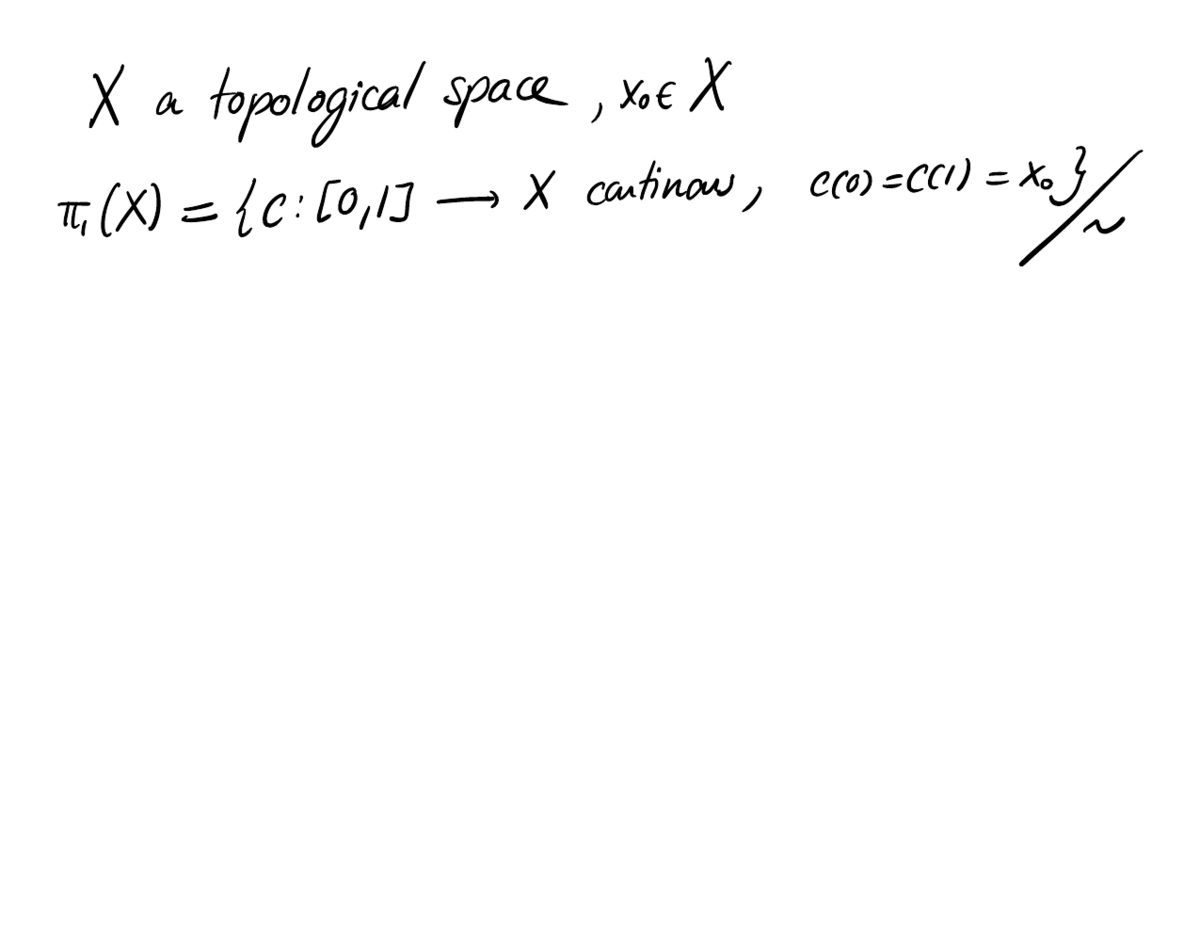 X a topological space, x₀ ∈ X
π₁(X) = {c: [0,1] ⟶ X continuous, c(0) = c(1) = x₀}/~